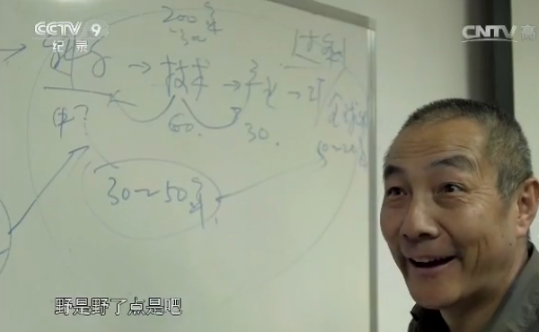 CCTV 9
纪录
CNTV 高
200年
科学 → 技术 → 产业 →
中?
60.
30.
30~50年
野是野了点是吧